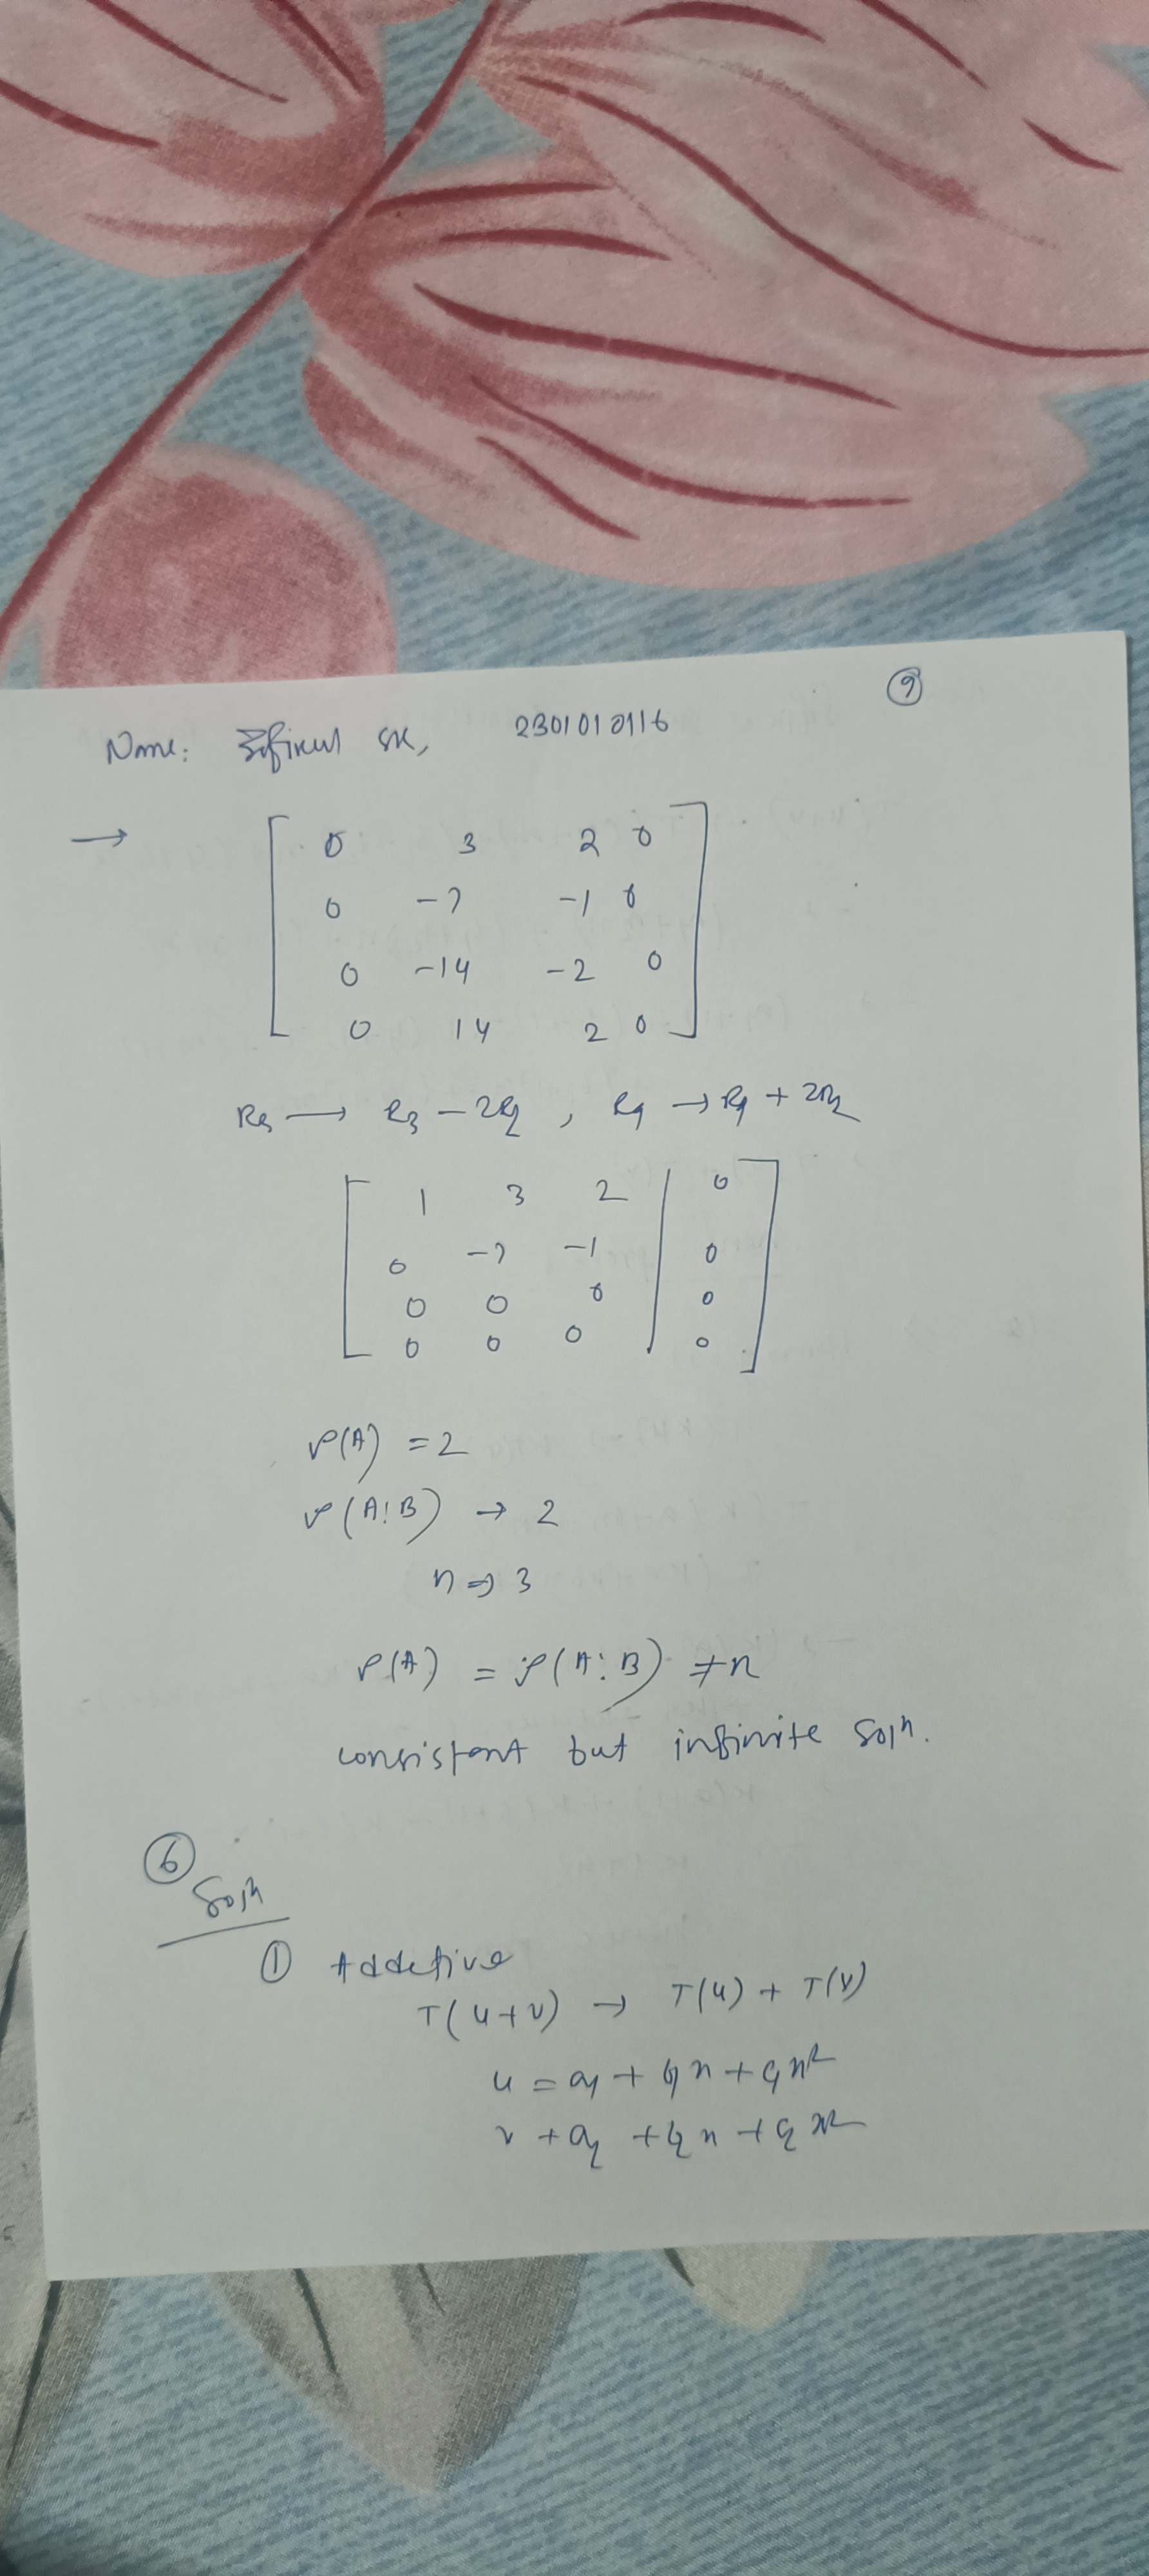 9
Name: SK, 2301010116
→
0 3 2 0
0 -7 -1 0
0 -14 -2 0
0 14 2 0
R3 → R3 - 2R2, R4 → R4 + 2R2
1 3 2 | 0
0 -7 -1 | 0
0 0 0 | 0
0 0 0 | 0
ρ(A) = 2
ρ(A:B) → 2
n ⇒ 3
ρ(A) = ρ(A:B) ≠ n
consistent but infinite soln.
6
Soln
1 Addetive
T(u+v) → T(u) + T(v)
u = a1 + b1x + c1x²
v + a2 + b2x + c2x²